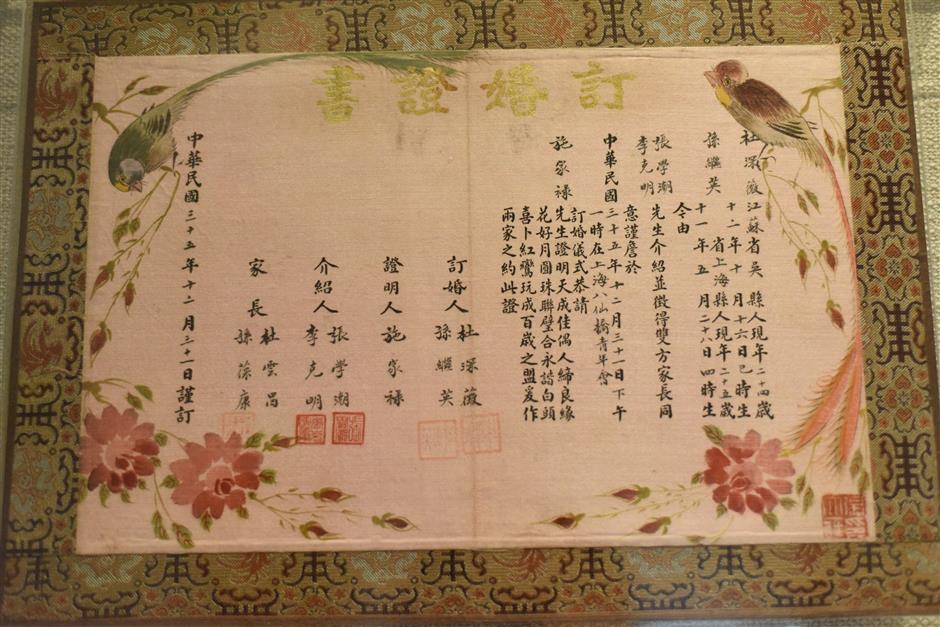 訂婚證書
杜深薇江蘇省吳縣人現年二十四歲
十二年十月十六日巳時生
孫繼英 省上海縣人現年二十五歲
十一年五月二十八日四時生
今由
張學潮
李克明
先生介紹並徵得雙方家長同
意謹詹於
中華民國三十五年十二月三十一日下午
一時在上海八仙橋青年會
訂婚儀式恭請
施家祿先生證明天成佳偶人締良緣
花好月圓珠聯璧合永諧白頭
喜卜紅鸞玩成百歲之盟爰作
兩家之約此證
訂婚人
杜深薇
孫繼英
證明人施家祿
介紹人
張學潮
李克明
家長
杜雲昌
孫葆康
中華民國三十五年十二月三十一日謹訂